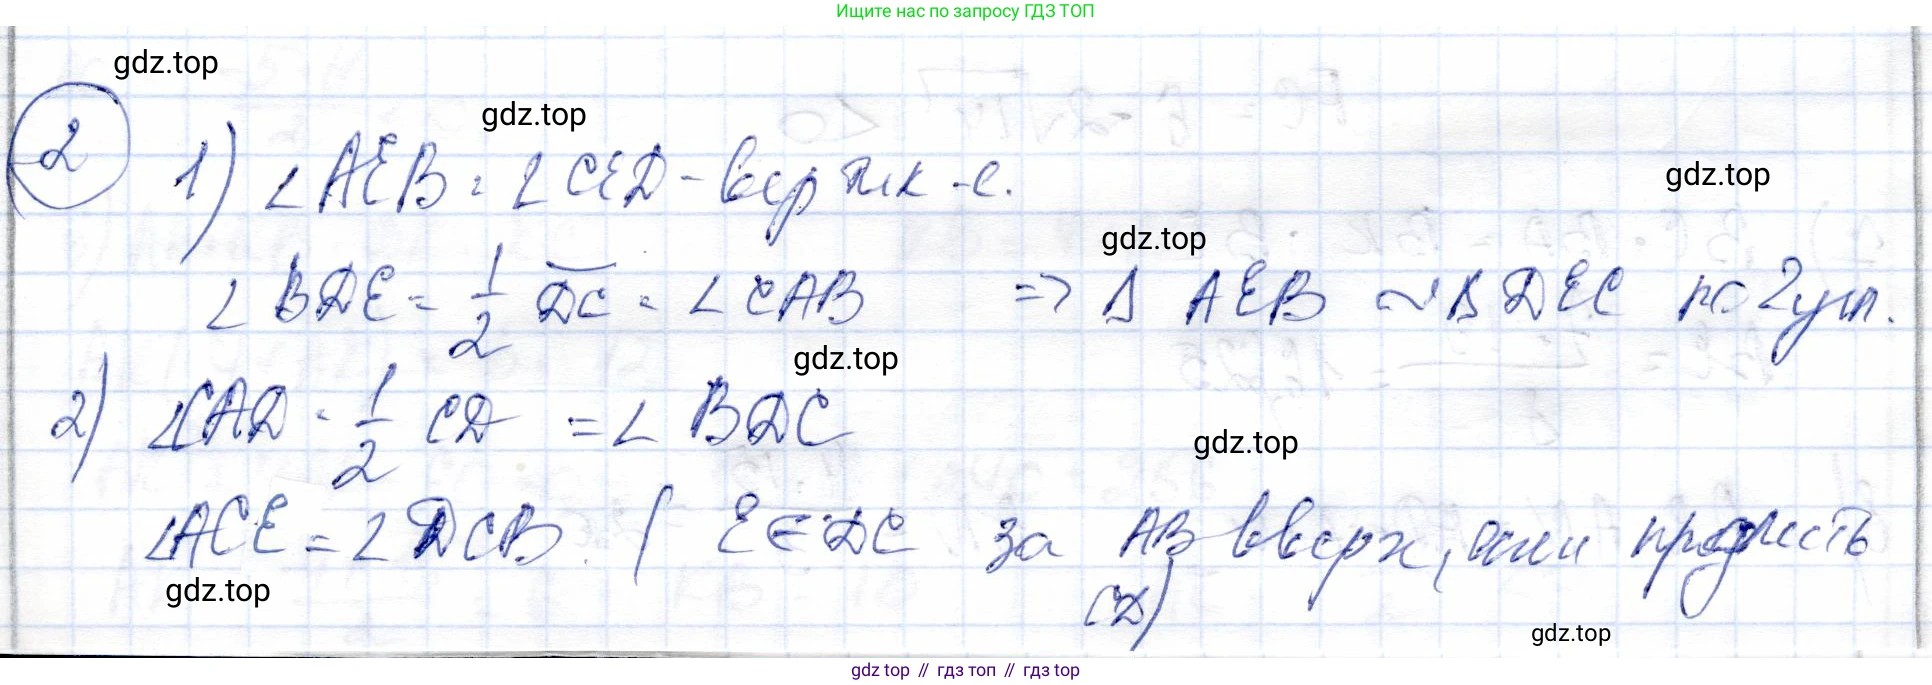 Ищите нас по запросу ГДЗ ТОП
gdz.top
gdz.top
2
1) ∠AEB = ∠CED - вертик-е.
gdz.top
gdz.top
∠BDE = 1/2 DC = ∠CAB => Δ AEB ~ Δ DEC по 2 угл.
gdz.top
2) ∠CAD = 1/2 CD = ∠BDC
gdz.top
∠ACE = ∠DCB. ( E ∈ DC за AB вверх, если продлить
(CD)
gdz.top
gdz.top
gdz top // гдз топ // гдз top